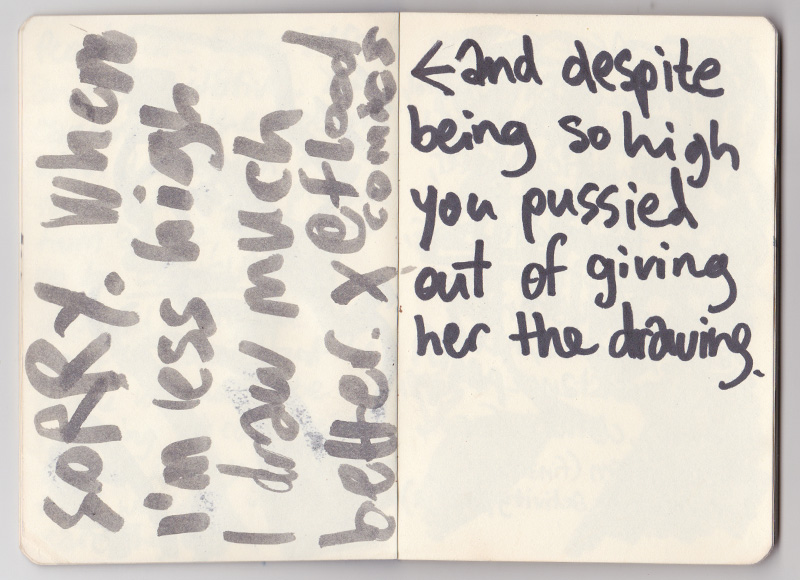 SORRY. When
I'm less high
I draw much
better. X @flood
comics
←and despite
being so high
you pussied
out of giving
her the drawing.